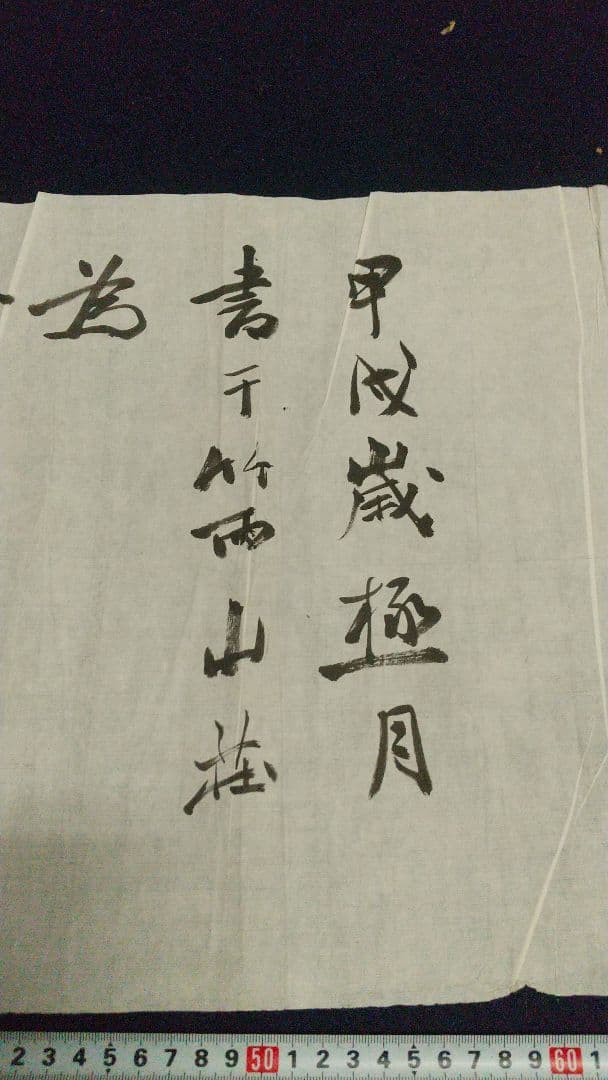 甲戌歳極月
書于竹雨山荘
為
2 3 4 5 6 7 8 9 50 1 2 3 4 5 6 7 8 9 60 1